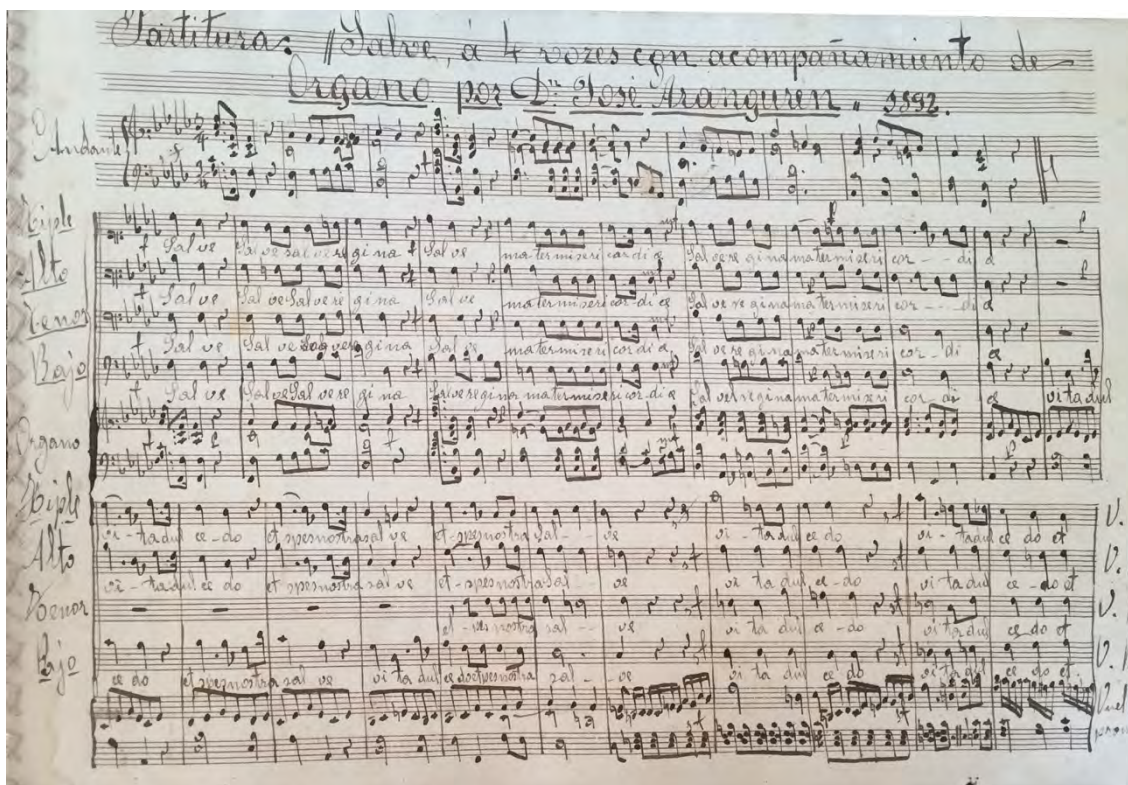 Partitura: Salve, á 4 vozes con acompañamiento de
Organo por Dn. José Aranguren
Andante
Tiple
Sal ve Sal ve sal ve re gi na Sal ve ma ter mi seri cor di æ Sal ve re gina ma ter miseri cor - - di æ
Alto
Sal ve Sal ve Sal ve re gina Sal ve ma ter mi seri cor - di æ Sal ve re gina ma ter miseri cor - - - di æ
Tenor
Sal ve Sal ve re gina Sal ve ma ter mi seri cor di æ Sal ve re gina ma ter miseri cor - di æ
Bajo
Sal ve Sal ve Sal ve re gi na Salve regina ma ter mi seri cor - di æ Salve regina ma ter miseri cor - di æ vi ta dul
Organo
Tiple
vi - ta dul ce - do et spes nostra sal ve et - spes nostra sal - - ve vi - ta dul ce do vi - ta dul ce do et
Alto
vi - ta dul ce - do et spes nostra sal ve et - spes nostra sal - - ve vi ta dul ce - do vi ta dul ce - do et
Tenor
et - spes nostra sal - - ve vi ta dul ce - do vi ta dul ce - do et
Bajo
ce do et spes nostra sal ve vi ta dul ce do sal - - ve vi ta dul ce do vi ta dul ce do et